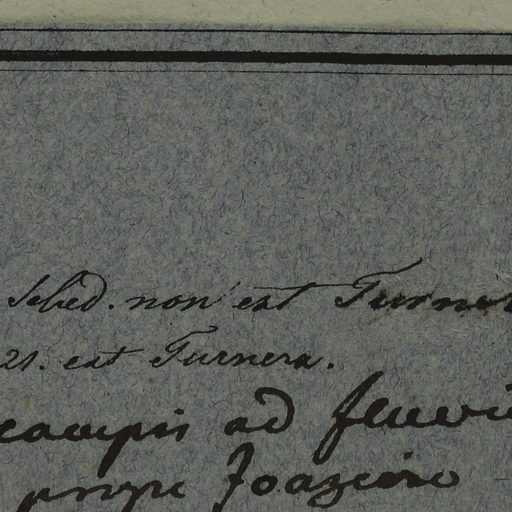 Sched. non est Turner
21. est Turnera.
campis ad fluvi
prope Joazeiro